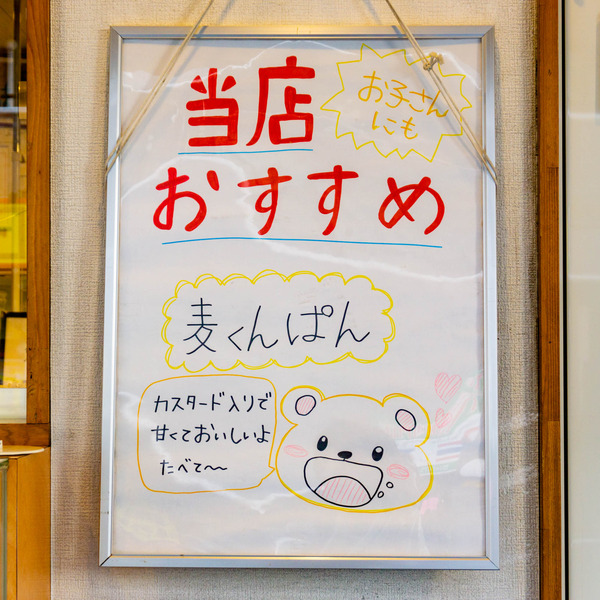 当店
お子さん
にも
おすすめ
麦くんぱん
カスタード入りで
甘くておいしいよ
たべて〜〜